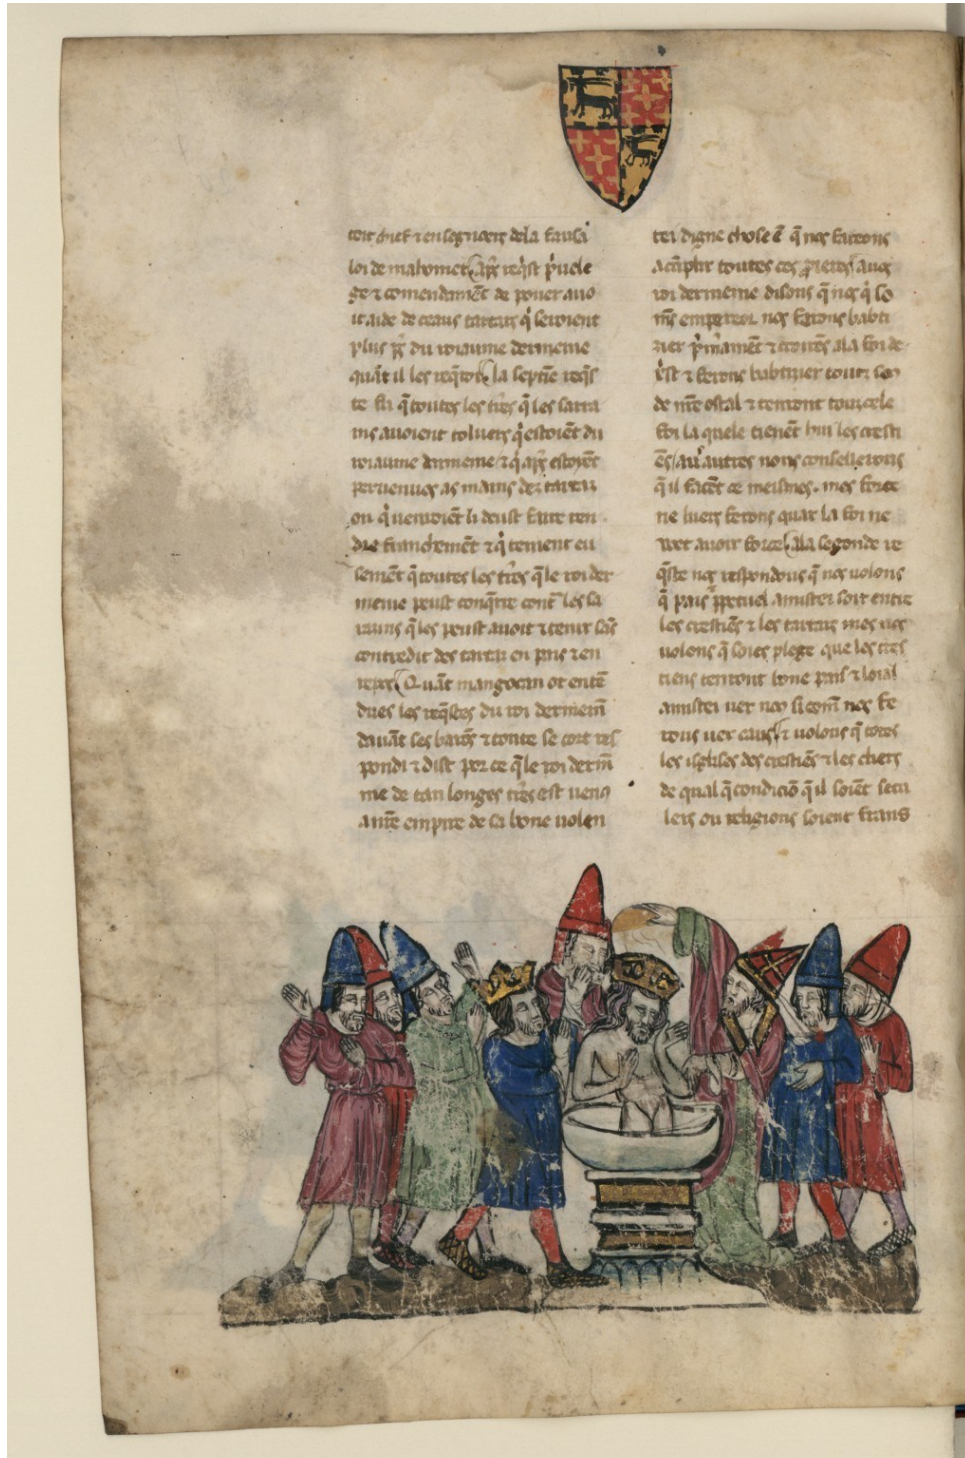 loi de mahomet apͬs reqͥst pͥuele
ge ⁊ comendamēt de pouer auo
ir aide de ceaus tartars qͥ seroient
plus pͬs du roiaume dermenie
quāt il les reqͥroit la septie reqͥs
te fu q̄ toutes les tͬres q̄ les sarra
ins auoient tolues qͥ estoiēt du
roiaume dermenie ⁊ qͥ apͬs estoyēt
peruenues as mains des tartars
ou qͥ uenroiēt li deust faire ren
dre franchemēt ⁊ qͥ
semēt q̄ toutes les tͬres q̄ le roi der
menie peust conqͬre contͬ les sa
razins q̄ les peust auoir ⁊ tenir sās
contredit des tartars en pais ⁊ en
repos Quāt mangocan ot entē
dues les reqͥstes du roi dermeni
dauāt ses barōs ⁊ toute se cort res
pondi ⁊ dist por ce q̄ le roi dermē
nie de tan longes tͬres est uenu
a nr̄e empire de sa bone uolen
tei digne chose ē q̄ nos facons
acūplir toutes ces pͬieres aus
roi dermenie disons q̄ nos qͥ so
m̄s empereor nos ferons babti
zier pͥmͥamēt ⁊ a la foi de
cͥst ⁊ ferons babtizier touz seu
de nr̄e ostal ⁊ tenront touz cele
foi la quele tienēt hui les cresti
ēs au autres nous conselierons
q̄ il facēt ce meismes mes force
ne luers ferons quar la foi ne
uet auoir force a la segonde re
qͥste nos respondons q̄ nos uolons
q̄ pais ꝑpetuel amistei soit entre
les crestiēs ⁊ les tartars mes nos
uolons q̄ soies plege que les cres
tiens tenront bone pais ⁊ loial
amistei uer nos si com̄ nos fe
rons uer eaus ⁊ uolons q̄ totes
les iglises des crestiēs ⁊ les clers
de qual q̄ condiciō q̄ il soiēt secu
lers ou religious soient frans